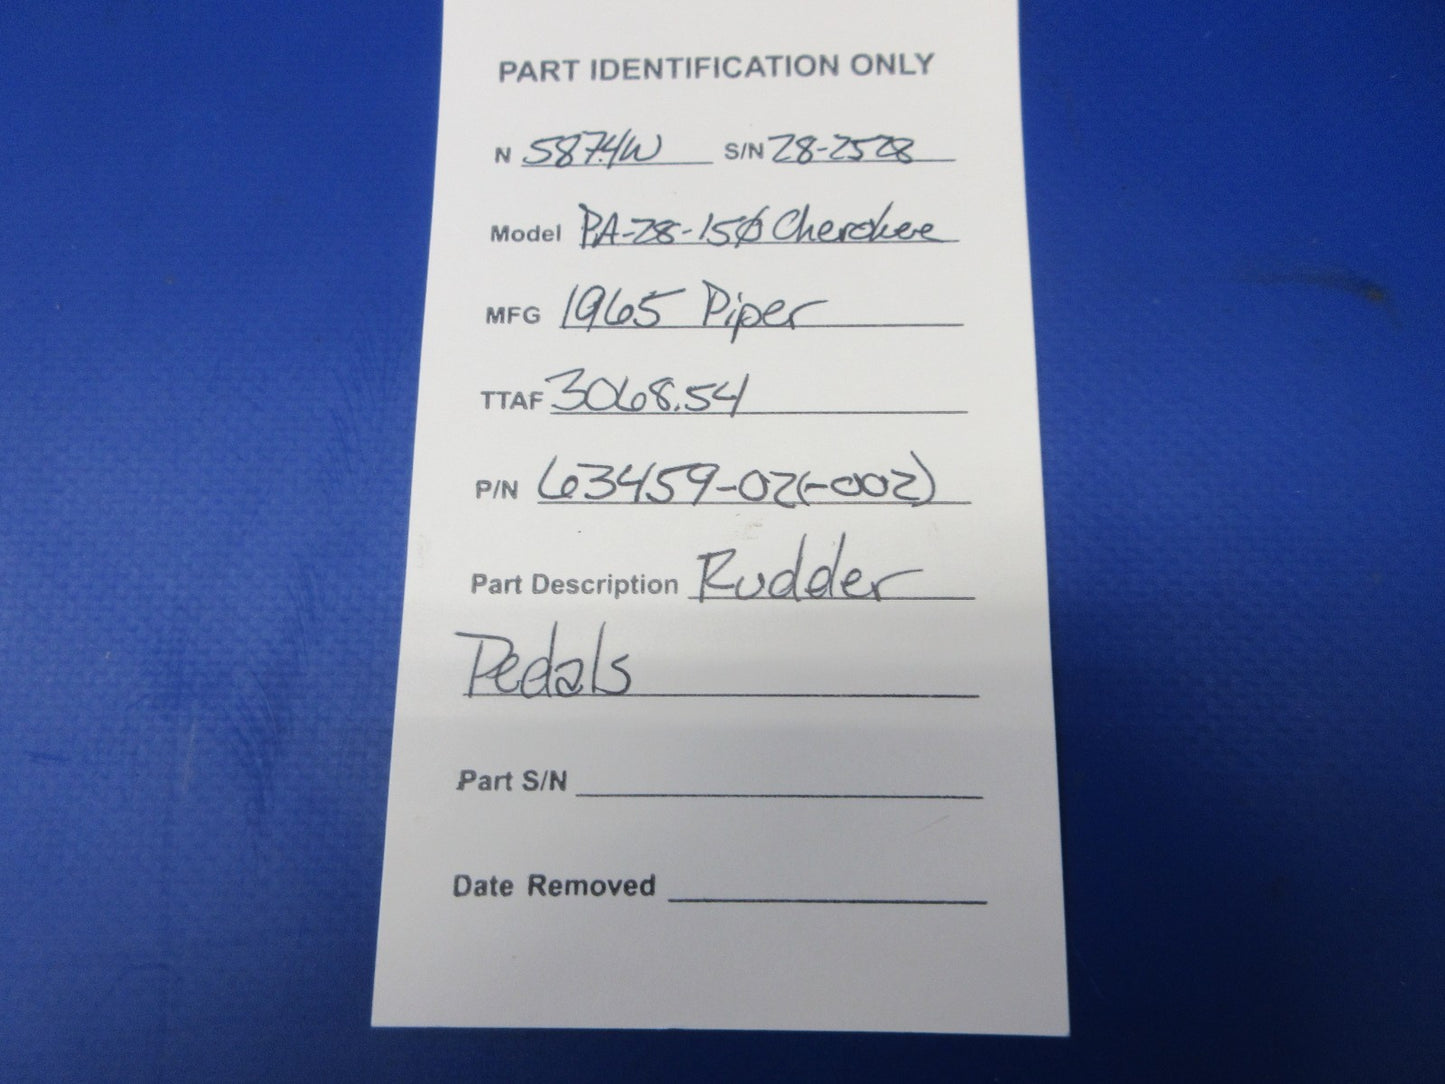 PART IDENTIFICATION ONLY
N 5874W S/N 28-2528
Model PA-28-150 Cherokee
MFG 1965 Piper
TTAF 3068.54
P/N 63459-02(-002)
Part Description Rudder
Pedals
Part S/N
Date Removed